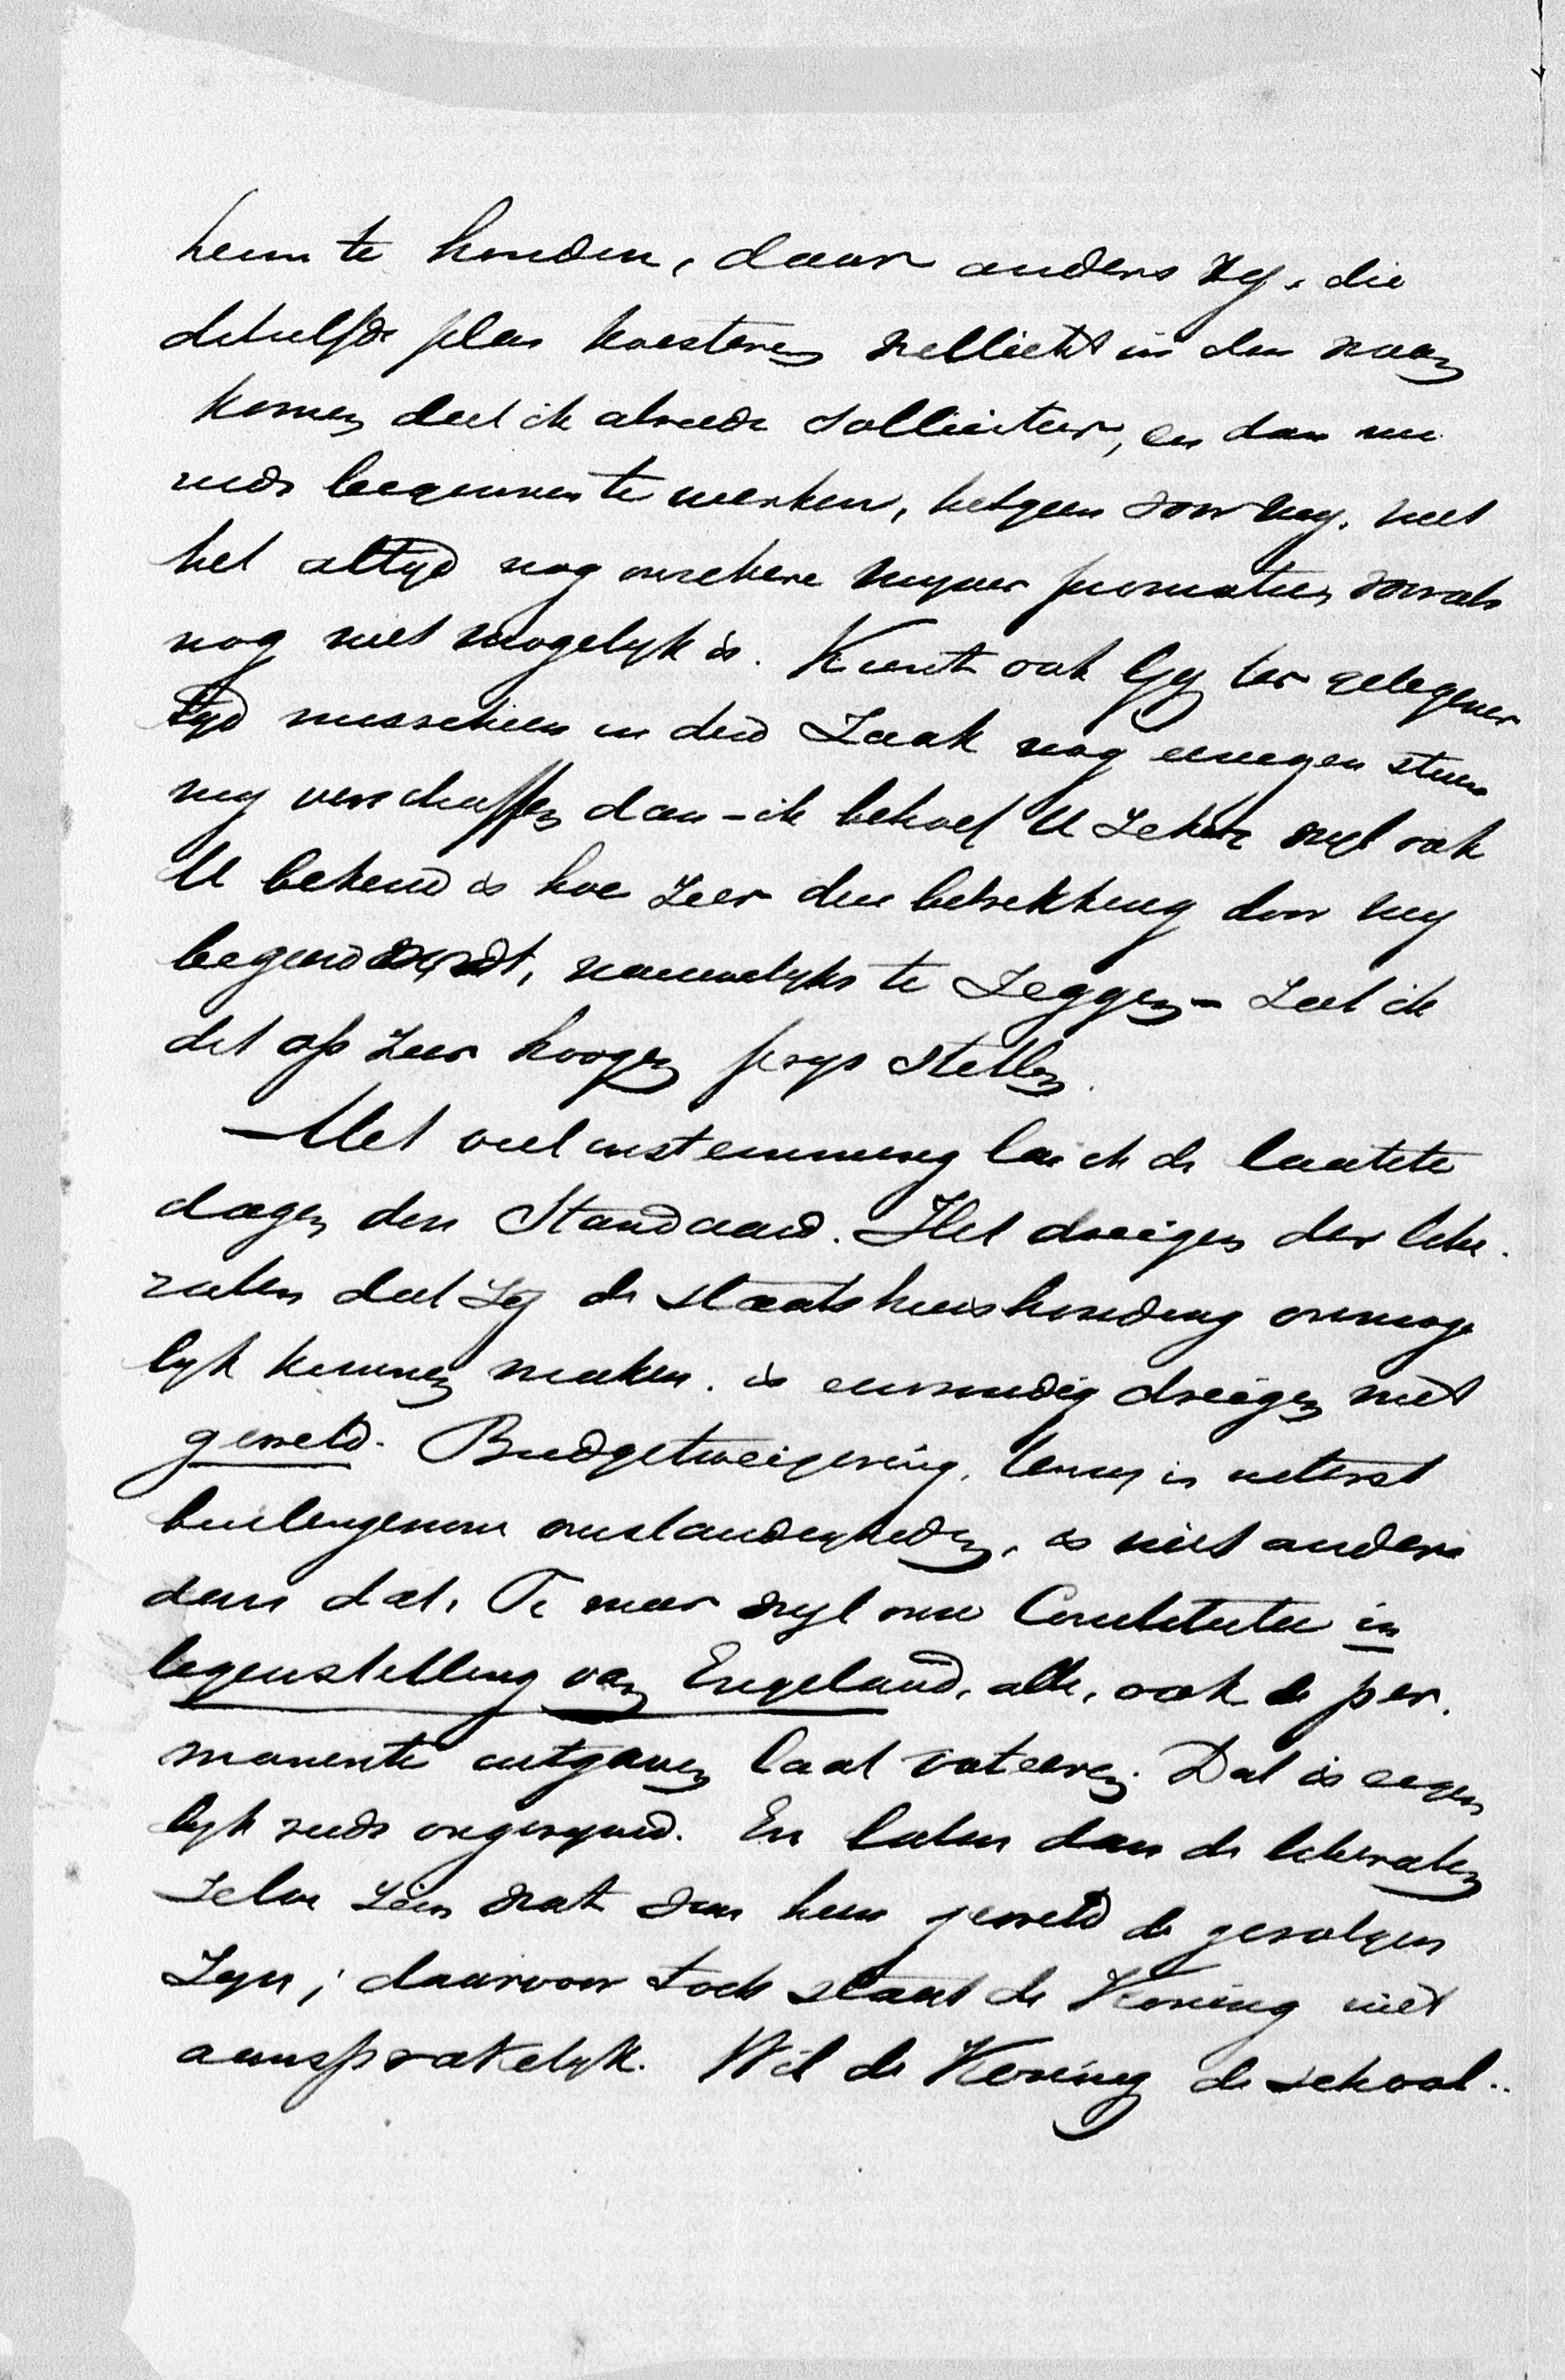 heim te houden, daar anders zij, die
datzelfde plan koesteren wellicht in den waan
komen dat ik alreede solliciteer, en dan nu
reeds beginnen te werken, hetgeen voor mij, met
het altijd nog onzekere mijner promotie, vooralsnog
nog niet mogelijk is. Kunt ook Gij ter gelegener
tijd misschien in deze Zaak nog eenigen steun
mij verschaffen dan – ik behoef U Zeker wijl ook
U bekend is hoe Zeer die betrekking door mij
begeerd wordt, nauwelijks te Zeggen – Zal ik
dit op Zeer hoogen prijs stellen.
– Met veel instemming las ik de laatste
dagen den Standaard. Het dreigen der libe-
ralen dat Zij de staatshuishouding onmoge
lijk kunnen maken, is eenvoudig dreigen met
geweld. Budgetweigering, tenzij in uiterst
buitengewone omstandigheden, is niet anders
dan dat. Te meer wijl onze Constitutie in
tegenstelling van Engeland, alle, ook de per-
manente uitgaven laat voteeren. Dat is eigen
lijk reeds ongerijmd. En laten dan de liberalen
Zelve Zien wat van hun geweld de gevolgen
Zijn; daarvoor toch staat de Koning niet
aansprakelijk. Wil de Koning de school-